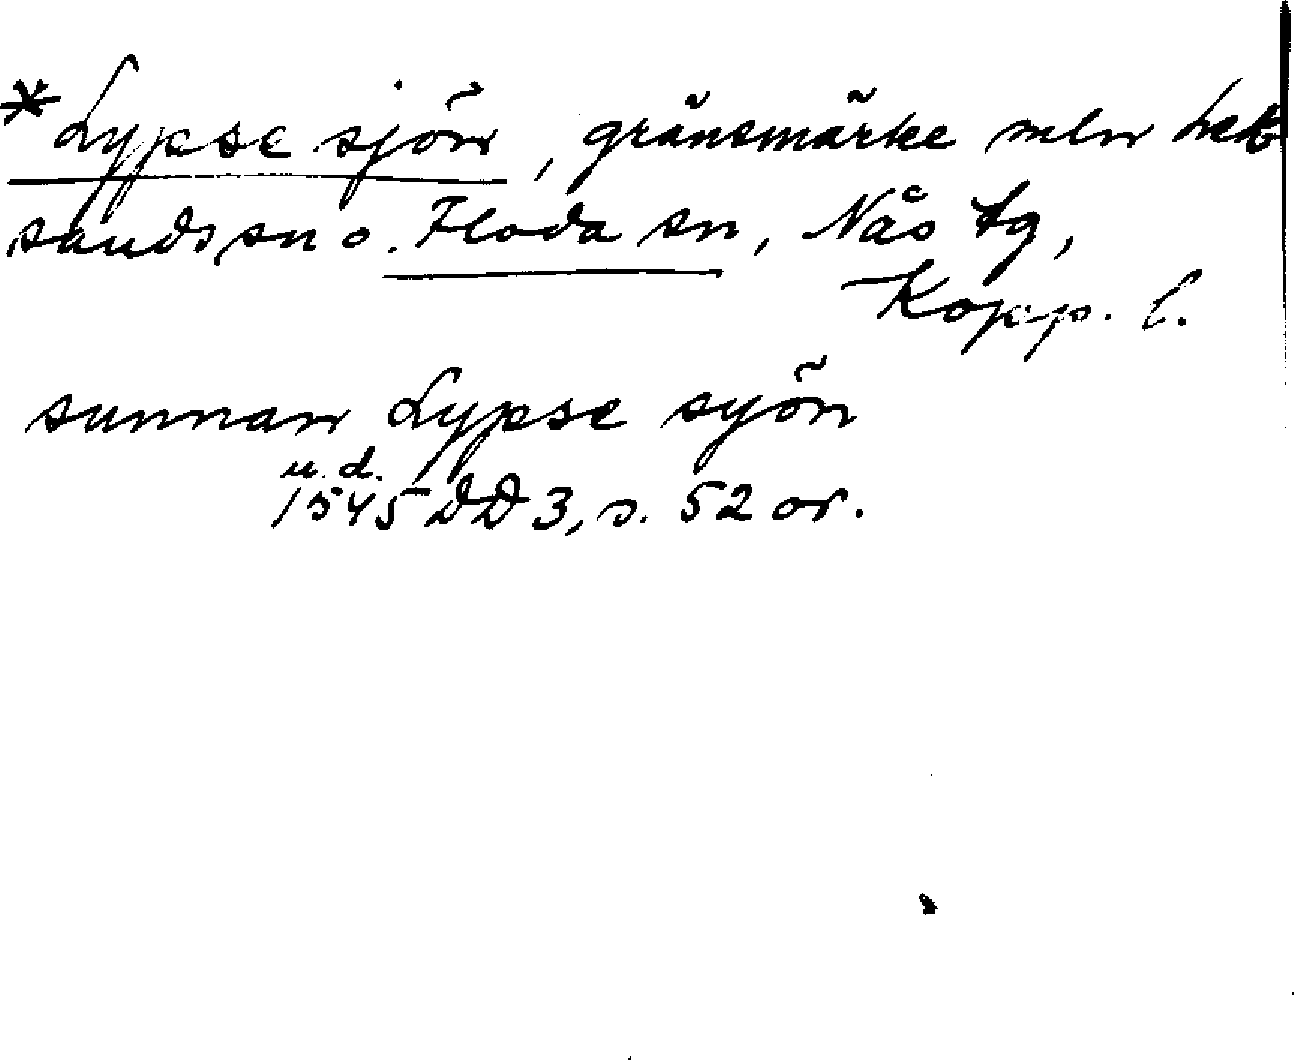 *Lypse sjön, gränsmärke mln Leksands sn o. Floda sn, Nås tg,
Kopp. l.
sunnan Lypse syön
u. d.
1545 DD 3, s. 52 or.